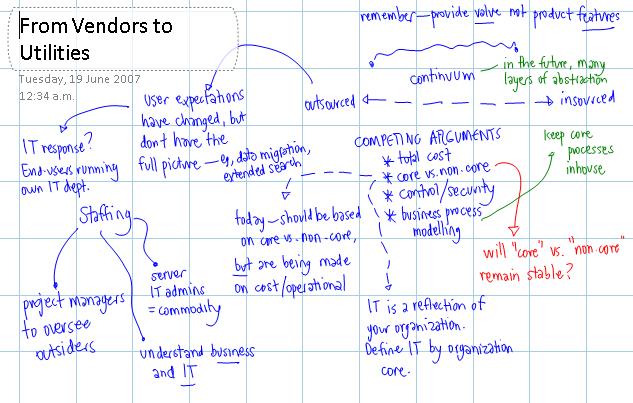 From Vendors to
Utilities
Tuesday, 19 June 2007
12:34 a.m.
remember—provide value not product features
continuum
in the future, many
layers of abstraction
outsourced
insourced
user expectations
have changed, but
don't have the
full picture — eg, data migration,
extended search
IT response?
End-users running
own IT dept.
COMPETING ARGUMENTS
* total cost
* core vs. non-core
* control/security
* business process
modelling
keep core
processes
inhouse
will "core" vs. "non-core"
remain stable?
today—should be based
on core vs. non-core,
but are being made
on cost/operational
IT is a reflection of
your organization.
Define IT by organization
core.
Staffing
project managers
to oversee
outsiders
server
IT admins
= commodity
understand business
and IT